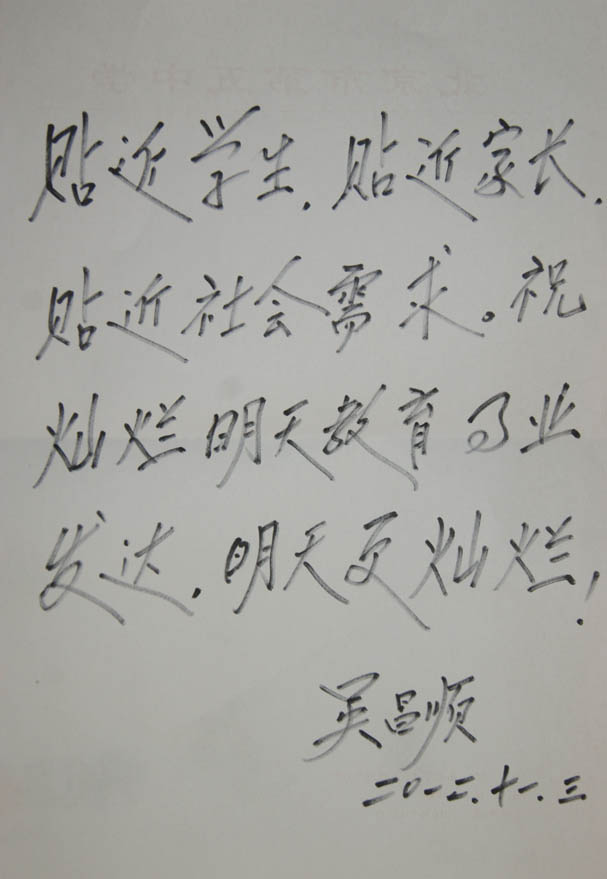 贴近学生，贴近家长，
贴近社会需求。祝
灿烂明天教育事业
发达，明天更灿烂！
吴昌顺
二〇一二.十一.三